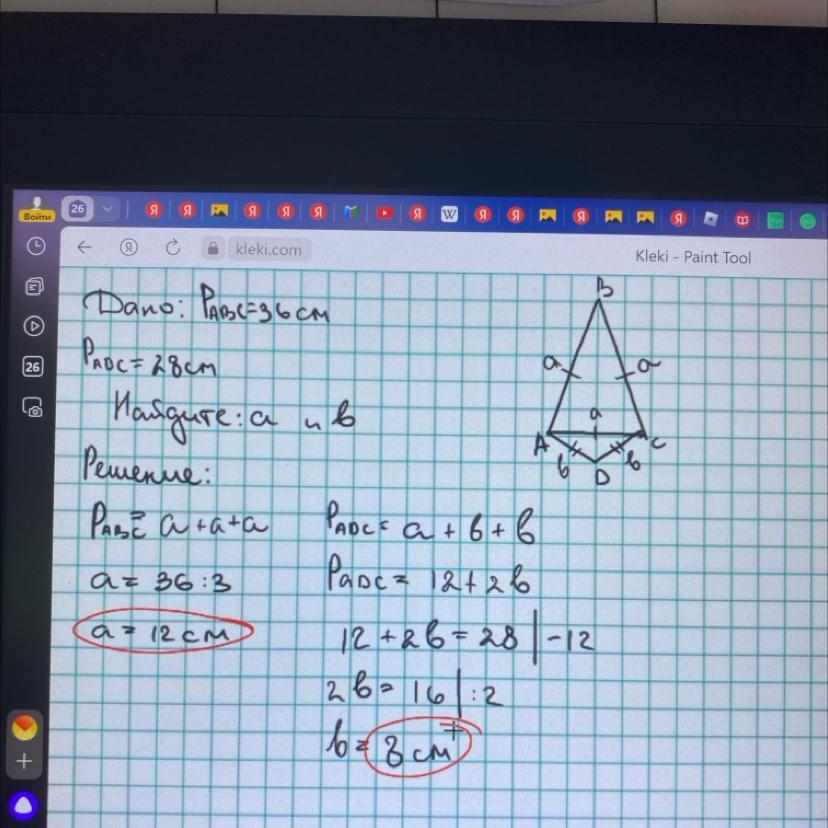 Войти
26
kleki.com
Kleki - Paint Tool
26
Дано: PABC=36см
PADC=28см
Найдите: a и b
Решение:
PABC= a+a+a
a= 36:3
a= 12см
PADC= a+b+b
PADC= 12+2b
12+2b=28 | -12
2b= 16 | :2
b= 8см
B
a
a
a
A
C
b
b
D